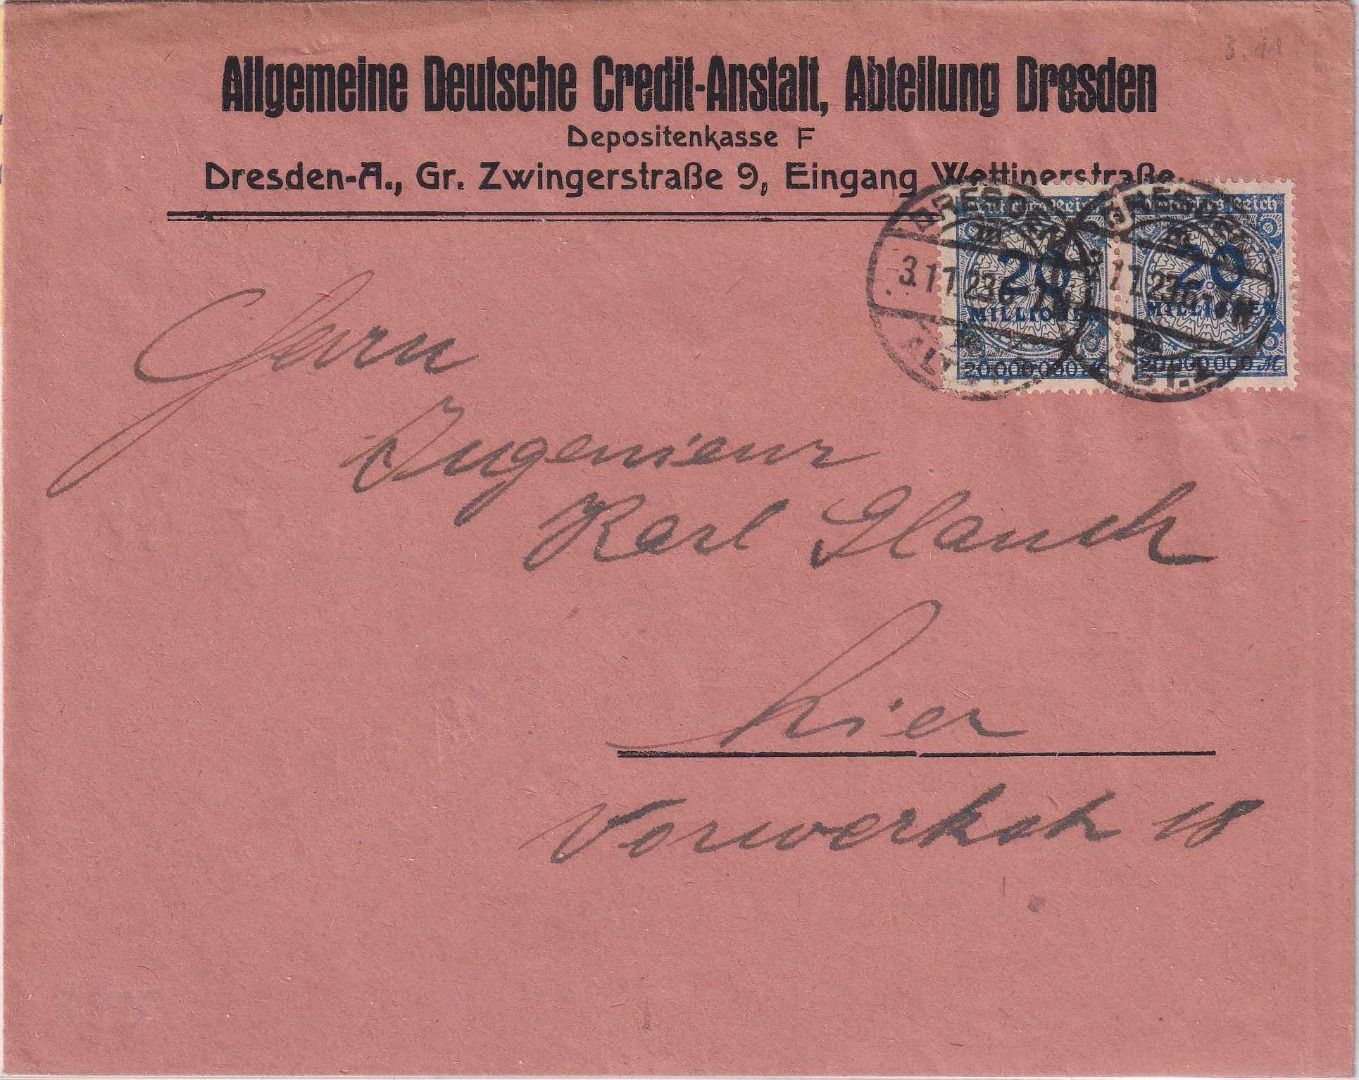 3.11
Allgemeine Deutsche Credit-Anstalt, Abteilung Dresden
Depositenkasse F
Dresden-A., Gr. Zwingerstraße 9, Eingang Wettinerstraße.
Deutsches Reich
20
MILLIONEN
20.000.000 M
Deutsches Reich
20
MILLIONEN
20.000.000 M
DRESDEN
3.11.23.6-7 N
ALTST.
DRESDEN
3.11.23.6-7 N
ALTST.
Herrn
Ingenieur
Karl Glauch
hier
Vorwerkstr 18